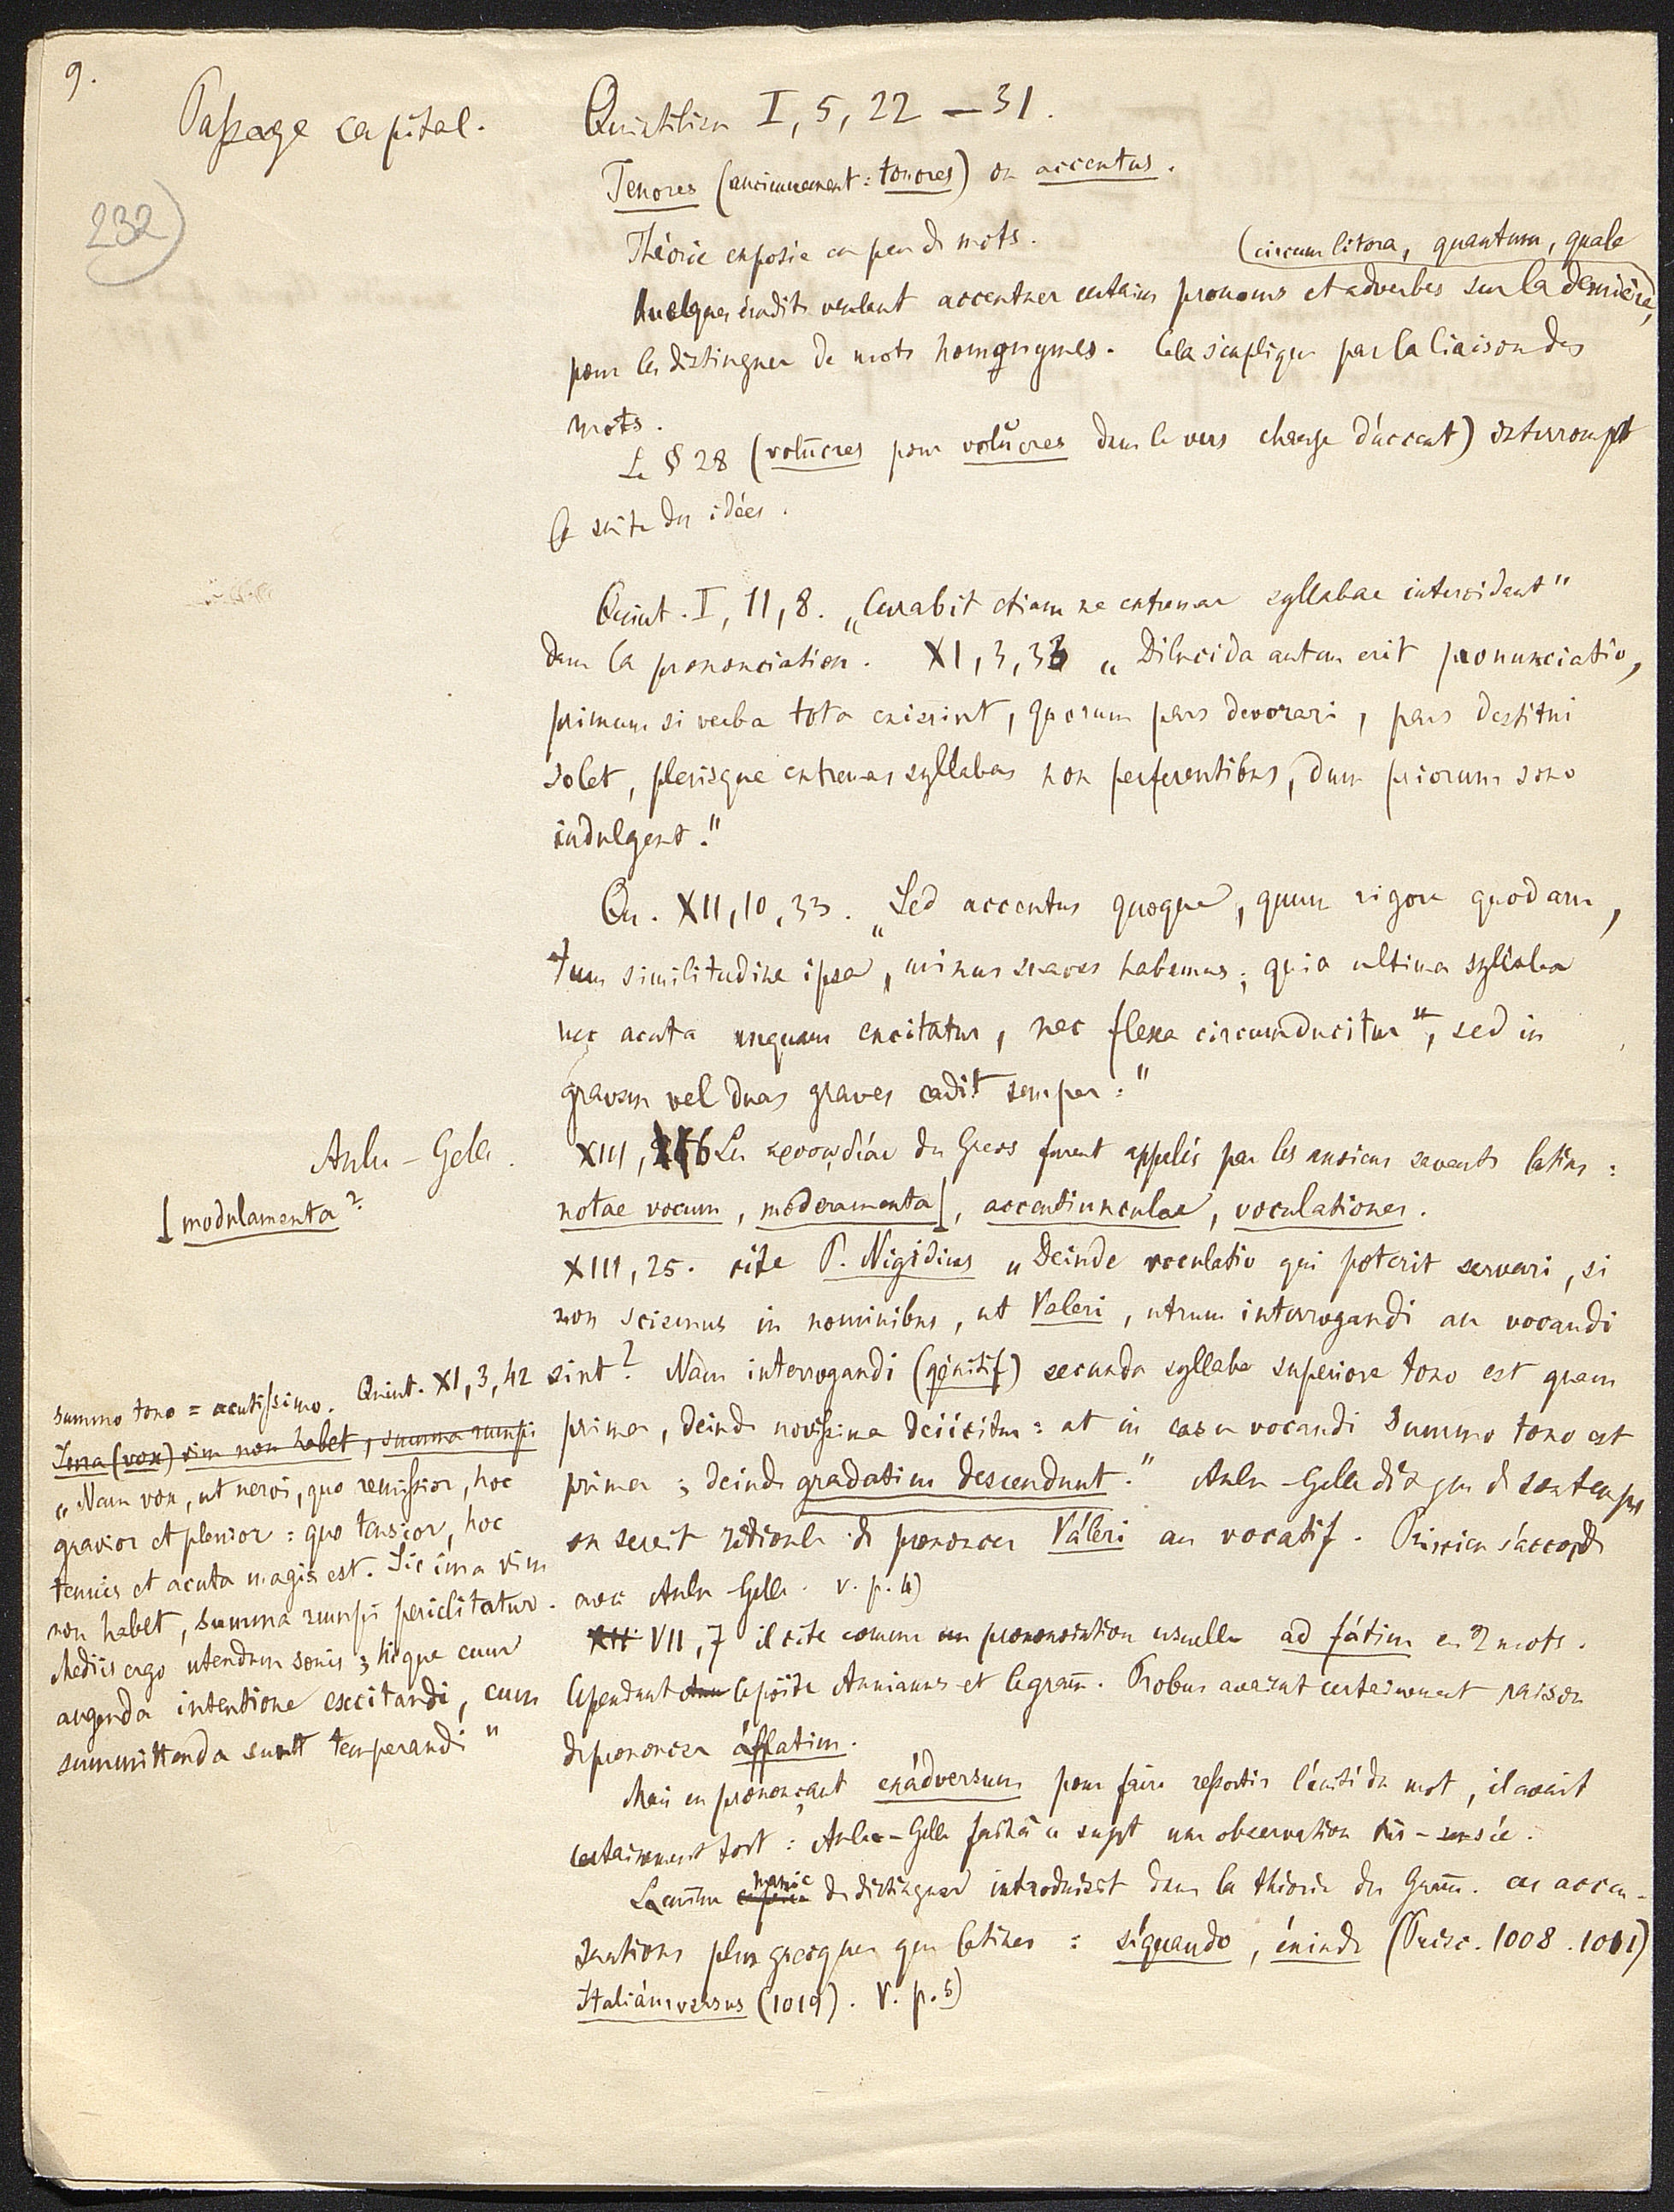 9.
Passage capital.
232)
Quintilien I, 5, 22 – 31.
Tenores (anciennement : tonores) ou accentus.
Théorie exposée en peu de mots.
(circum litora, quantum, quale
Quelques érudits veulent accentuer certains pronoms et adverbes sur la dernière,
pour les distinguer de mots homonymes. Cela s'explique par la liaison des
mots.
Le § 28 (volūcres pour volŭcres dans le vers change d'accent) interrompt
la suite des idées.
Quint. I, 11, 8. „Curabit etiam ne extremae syllabae intercidant"
dans la prononciation. XI, 3, 33 „Dilucida autem erit pronunciatio,
primum si verba tota exierint, quorum pars devorari, pars destitui
solet, plerisque extremas syllabas non perferentibus, dum priorum sono
indulgent."
Qu. XII, 10, 33. „Sed accentus quoque, quum rigore quodam,
tum similitudine ipsa, minus suaves habemus; quia ultima syllaba
nec acuta unquam excitatur, nec flexa circumducitur, sed in
gravem vel duas graves cadit semper."
Aulu-Gelle.
XIII, 6 Les προσῳδίαι des Grecs furent appelés par les anciens savants latins :
notae vocum, moderamenta[, accentiunculae, voculationes.
[modulamenta?
XIII, 25. cite P. Nigidius „Deinde voculatio qui poterit servari, si
non sciemus in nominibus, ut Valeri, utrum interrogandi an vocandi
sint? Nam interrogandi (génitif) secunda syllaba superiore tono est quam
prima, deinde novissima deiicitur : at in casu vocandi summo tono est
prima ; deinde gradatim descendunt." Aulu-Gelle dit que de son temps
on serait ridicule de prononcer Váleri au vocatif. Priscien s'accorde
avec Aulu-Gelle. v. p. 4)
summo tono = acutissimo. Quint. XI, 3, 42
Ima (vox) vim non habet, summa rumpi
„Nam vox, ut nervi, quo remissior, hoc
gravior et plenior : quo tensior, hoc
tenuis et acuta magis est. Sic ima vim
non habet, summa rumpi periclitatur.
Mediis ergo utendum sonis ; hique cum
augenda intentione excitandi, cum
summittenda sunt temperandi"
XII VII, 7 il cite comme un prononciation usuelle ad fátim en 2 mots.
Cependant Ann le poëte Annianus et le gram̄. Probus avaient certainement raison
de prononcer áffatim.
Mais en prononçant exádversum pour faire ressortir l'unité du mot, il avait
certainement tort : Aulu-Gelle fait à ce sujet une observation très-sensée.
La même manie de distinguer introduisit dans la théorie des Gram̄. ces accen-
tuations plus grecques que latines : síquando, éxinde (Prisc. 1008. 1011)
Italiámversus (1019). V. p. 5)